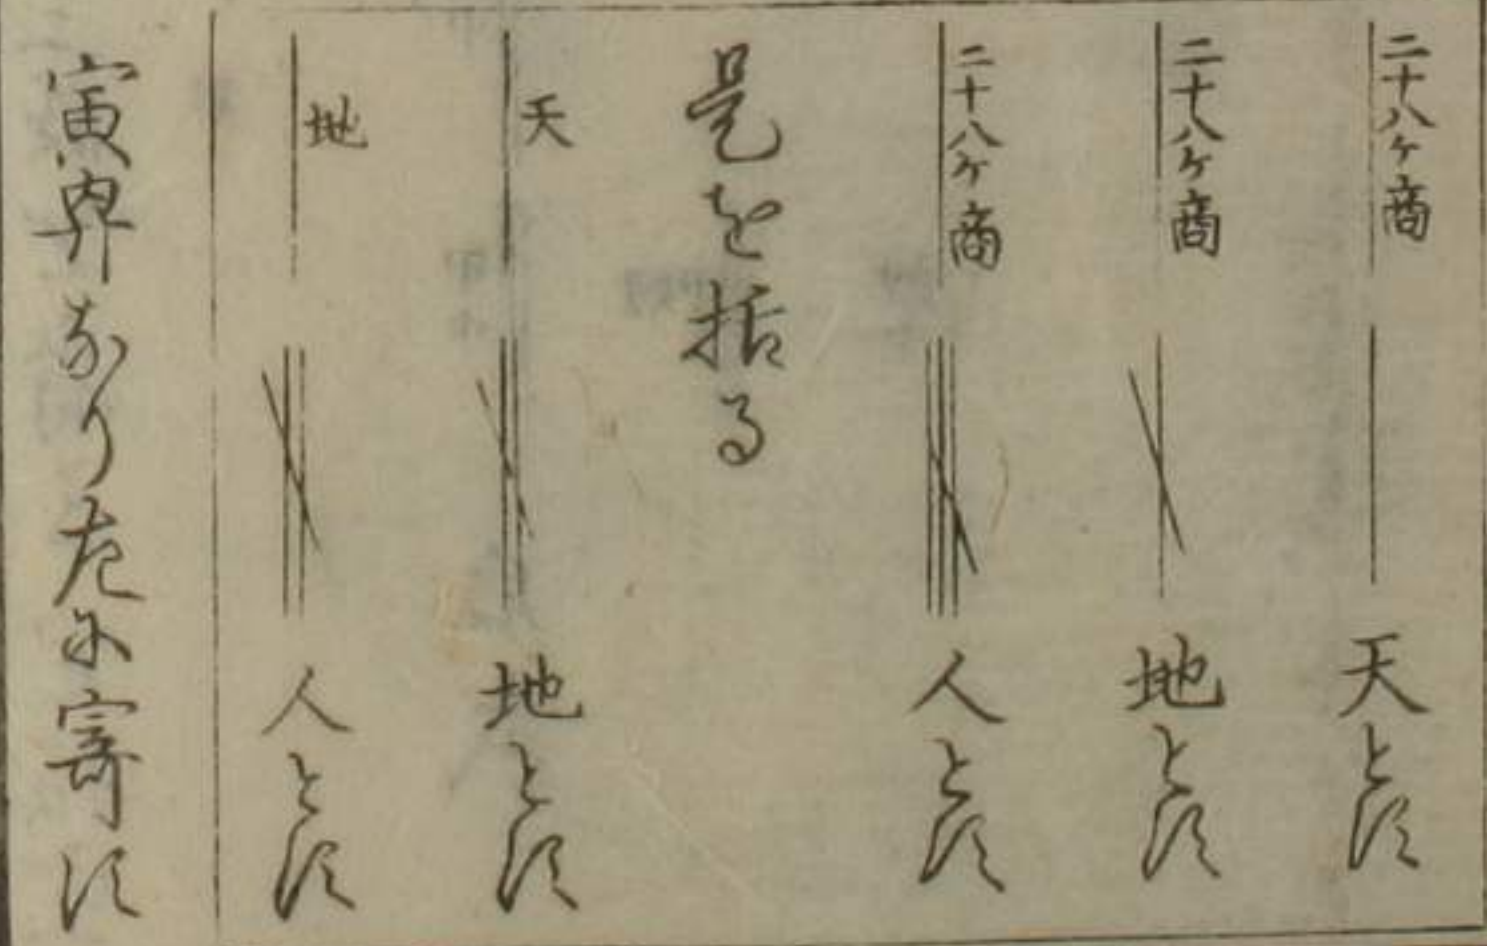 二十八ケ商 天とす
二十八ケ商 地とす
二十八ケ商 人とす
是を括る
天 地とす
地 人とす
寅 なり左に寄す